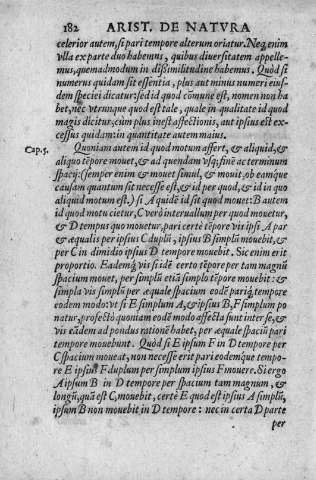 182 ARIST. DE NATVRA
celerior autem, si pari tempore alterum oriatur. Neq; enim
vlla ex parte duo habemus, quibus diuersitatem appelle-
mus, quemadmodum in dißimilitudine habemus. Quòd si
numerus quidam sit essentia, plus aut minus numeri eius-
dem speciei dicatur: sed id quod cõmune est, nomen non ha
bet, nec vtrunque quod est tale, quale in qualitate id quod
magis dicitur, cùm plus inest affectionis, aut ipsius est ex-
cessus quidam: in quantitate autem maius.
Cap. 5. Quoniam autem id quod motum affert, & aliquid, &
aliquo tẽpore mouet, & ad quendam vsq; finẽ ac terminum
spacij: (semper enim & mouet simul, & mouit, ob eamque
causam quantum sit necesse est, & id per quod, & id in quo
aliquid motum est.) si A quidẽ id sit quod mouet: B autem
id quod motu cietur, C verò interuallum per quod mouetur,
& D tempus quo mouetur, pari certè tẽpore vis ipsi A par
& æqualis per ipsius C duplũ, ipsius B simplũ mouebit, &
per C in dimidio ipsius D tempore mouebit. Sic enim erit
proportio. Eademq́; vis si idẽ certo tẽpore per tam magnũ
spacium mouet, per simplũ etiã simplo tẽpore mouebit: &
simpla vis simplũ per æquale spacium eodẽ pariq́; tempore
eodem modo: vt si E simplum A, & ipsius B, F simplum po
natur, profectò quoniam eodẽ modo affecta sunt inter se, &
vis eâdem ad pondus ratione habet, per æquale spaciũ pari
tempore mouebunt. Quòd si E ipsum F in D tempore per
C spacium moueat, non necesse erit pari eodemque tempo-
re E ipsius F duplum per simplum ipsius F mouere. Si ergo
A ipsum B in D tempore per spacium tam magnum, &
longũ, quã est C, mouebit, certè E quod est ipsius A simplũ,
ipsum B non mouebit in D tempore: nec in certa D parte
per